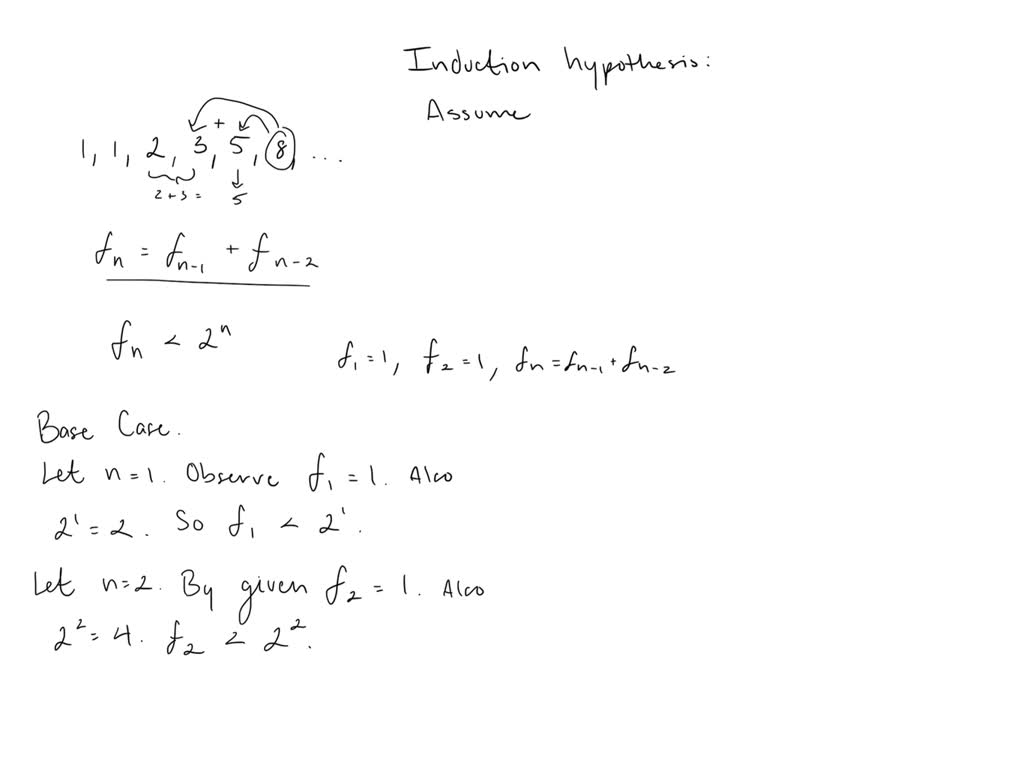 Induction hypothesis:
Assume
+
1, 1, 2, 3, 5, 8, ...
2+3 = 5
fₙ = fₙ₋₁ + fₙ₋₂
fₙ < 2ⁿ
f₁ = 1, f₂ = 1, fₙ = fₙ₋₁ + fₙ₋₂
Base Case.
Let n = 1. Observe f₁ = 1. Also
2¹ = 2. So f₁ < 2¹.
Let n = 2. By given f₂ = 1. Also
2² = 4. f₂ < 2².